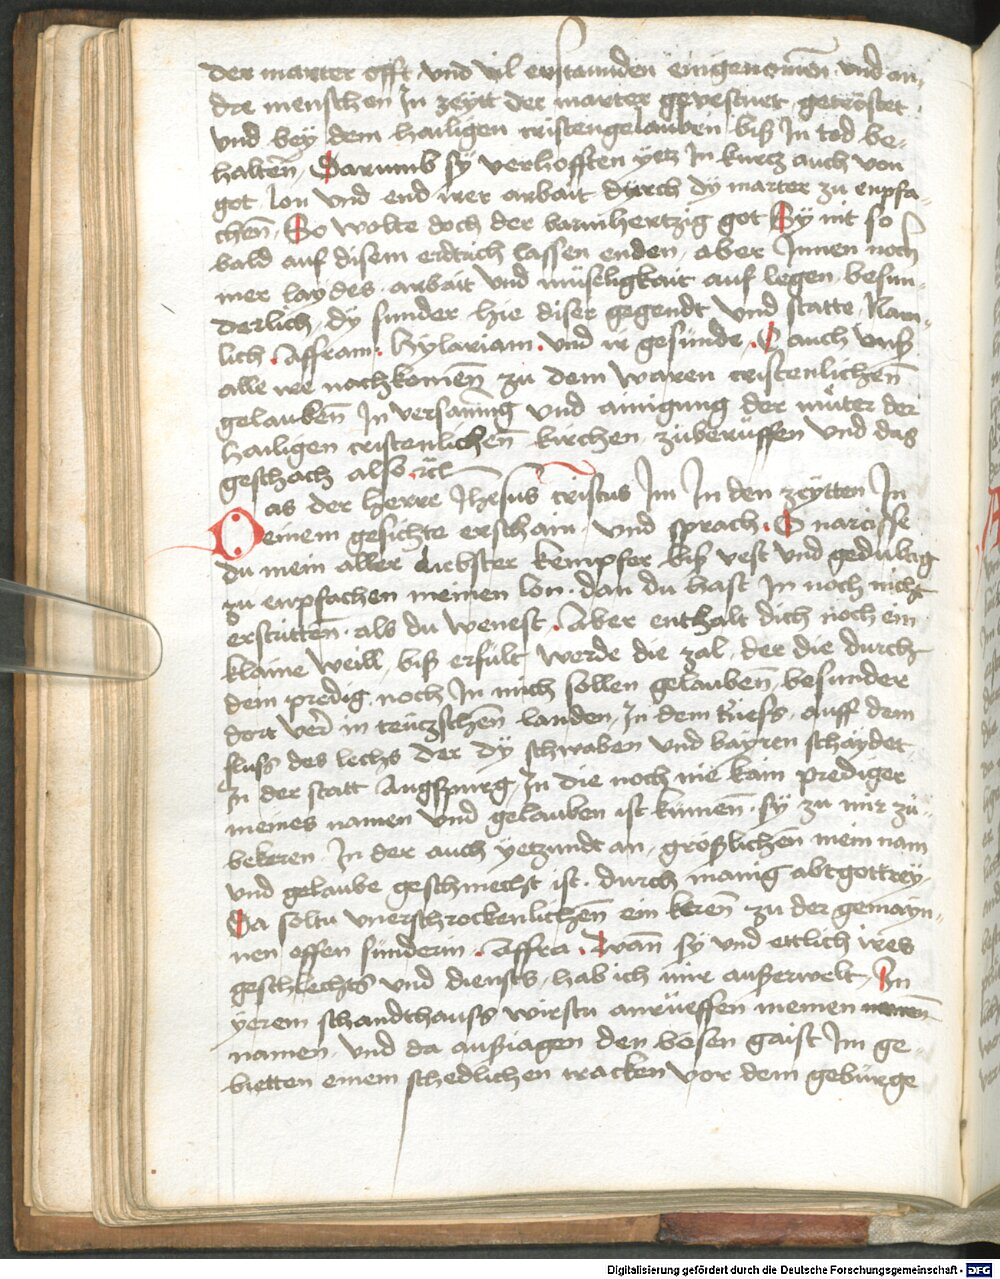 der marter offt vnd vil enstanden eingenomen vnd an-
dre menschen In zeytt der marter gevestnet getröstet
vnd bey dem hailigen cristengelauben biß In tod be-
halten, Darumb sy verhofften yetz In kurtz auch von
got lon vnd end irer arbait durch dy marter zu enpfa-
chen, So wolte doch der barmhertzig got Sy nit so
bald auf disem erdtrich lassen enden, aber Innen noch
mer laydes arbait vnd müseligkait auf legen, besun-
derlich, dy sunder hie diser gegendt vnd statte, Nam-
lich . Affram . hylariam . vnd ir gesünde, . auch vnß
alle ire nachkomen zu dem waren cristenlichen
gelauben In versamng vnd ainigung der mueter der
hailigen cristenlichen kirchen zuberüffen vnd das
geschach also
as der herre Jhesus cristus Im In den zeytten In
einem gesichte erschain vnd sprach . O narcisse
du mein aller liebster kempfer biß vest vnd gedultig
zu enpfachen meinen lon . dan du hast In noch nicht
erstritten . als du wenest . Aber enthalt dich noch ein
klaine weill, biß erfült werde die zal, der die durch
dem predig noch In mich sollen gelauben, besunder
dort ver in teutzschen landen, In dem Riess, auff dem
fluß des lechs der dy schwaben vnd bayren schaydet
In der statt Augspurg, In die noch nie kain prediger
meines namen vnd gelauben ist kumen . sy zu mir zu-
bekeren . In der auch yetzundt an, größlichen mein nam
vnd gelaube geschmecht ist . durch manig abtgottrey
Da soltu vnerschrockenlichen ein keren zu der gemayn-
nen offen sünderin . Affra . wann sy vnd ettlich ires
geschlechts vnd diensts, hab ich mir außerwelt, In
yerem schandthauß wirstu anrüeffen meinen
namen, vnd da außiagen den bösen gaist Im ge-
bietten einem schedlichen tracken vor dem gebürge
Digitalisierung gefördert durch die Deutsche Forschungsgemeinschaft - DFG